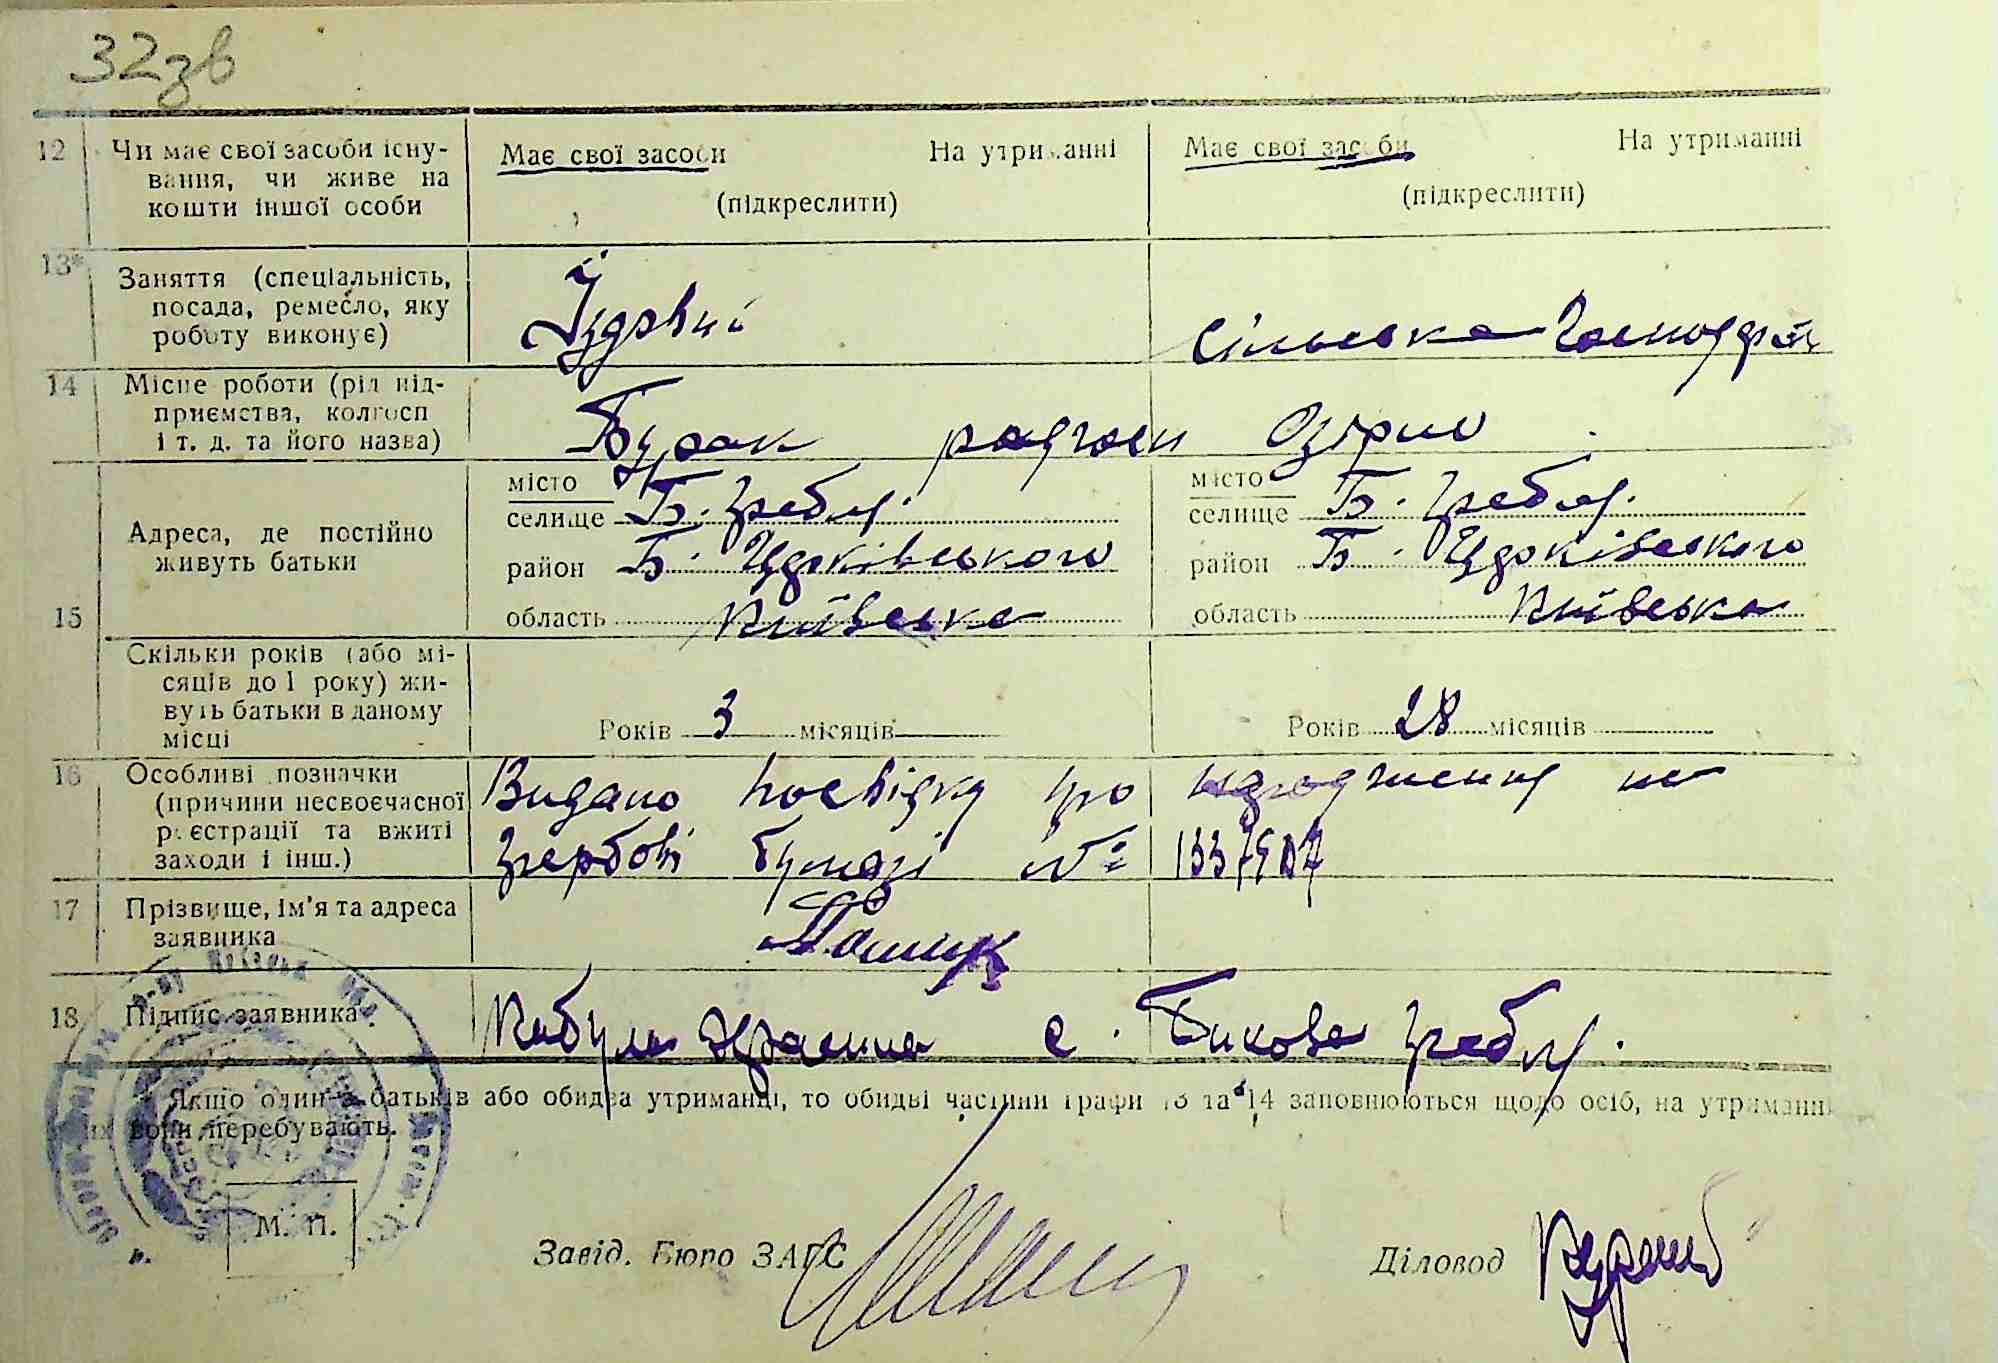 32зв
12 Чи має свої засоби існу-
вання, чи живе на
кошти іншої особи
Має свої засоби На утриманні
(підкреслити)
Має свої засоби На утриманні
(підкреслити)
13* Заняття (спеціальність,
посада, ремесло, яку
роботу виконує)
Їздовий
сільське
14 Місце роботи (рід під-
приємства, колгосп
і т. д. та його назва)
Бурак радгосп Озірно
15 Адреса, де постійно
живуть батьки
місто
селище Б. Гребля
район Б. Церківського
область Київська
місто
селище Б. Гребля.
район Б. Церківського
область Київська
Скільки років (або мі-
сяців до 1 року) жи-
вуть батьки в даному
місці
Років 3 місяців
Років 28 місяців
16 Особливі позначки
(причини несвоєчасної
реєстрації та вжиті
заходи і інш.)
Видано посвідку про народження на
гербові бумазі №
17 Прізвище, ім'я та адреса
заявника
18 Підпис заявника
с. Бикова Гребля.
* Якщо один з батьків або обидва утриманці, то обидві частини графи 13 та 14 заповнюються щодо осіб, на утриманні
их вони перебувають.
М. П.
Завід. Бюро ЗАГС
Діловод